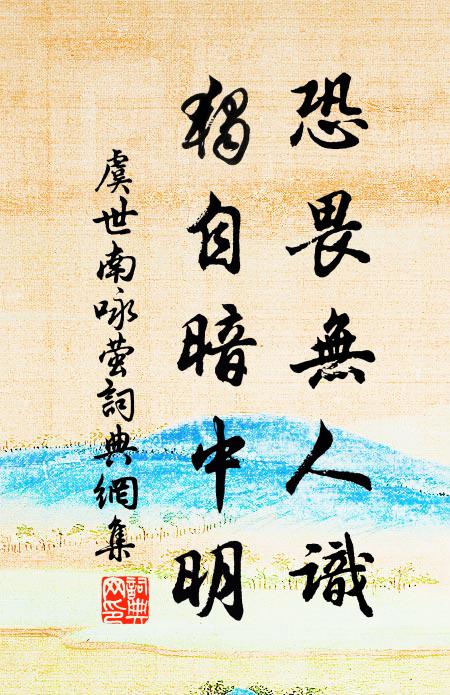 恐畏無人識
獨自暗中明
虞世南咏螢詞典網集
詞典